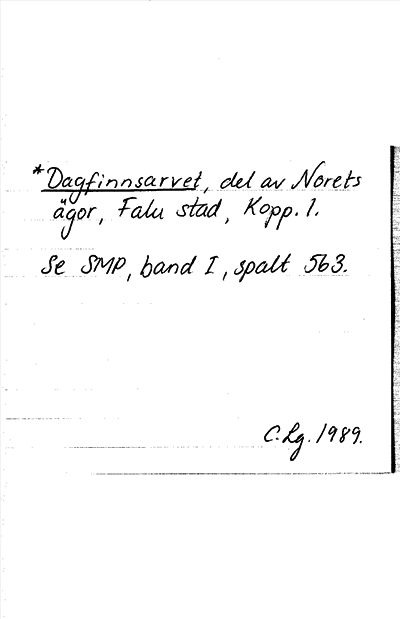 *Dagfinnsarvet, del av Norets
ägor, Falu stad, Kopp. l.
Se SMP, band I, spalt 563.
C. Lg. 1989.